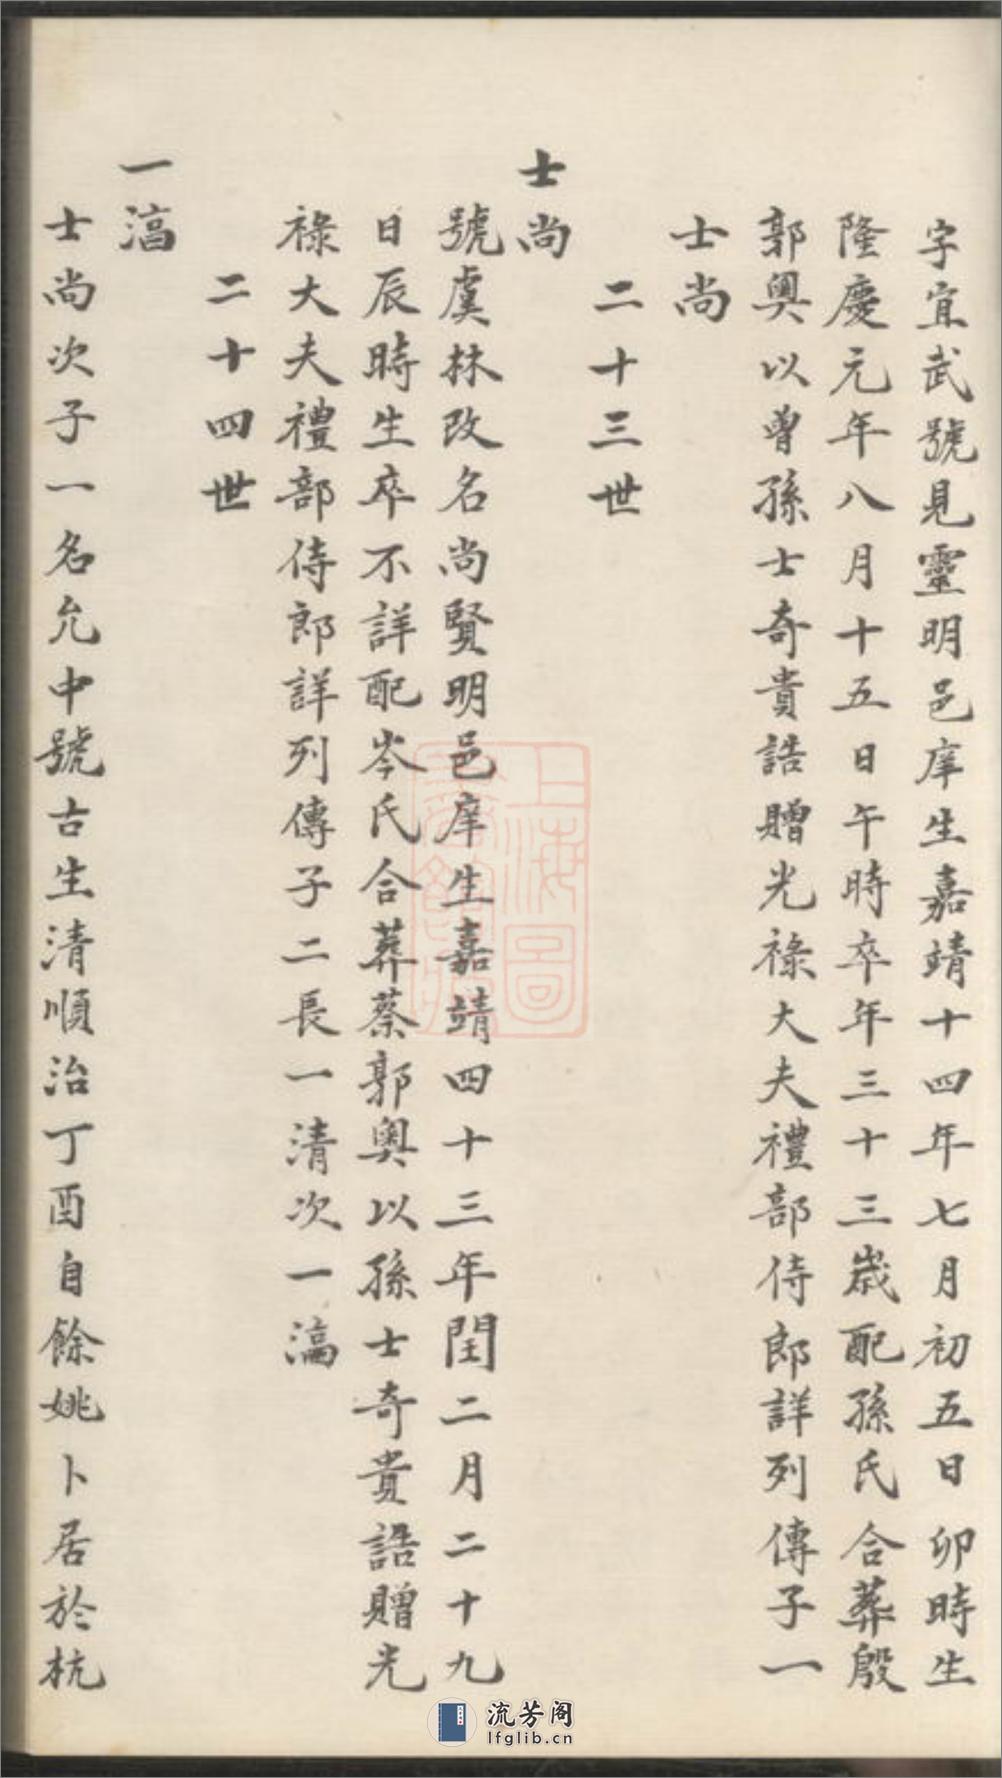 字宜武號見靈明邑庠生嘉靖十四年七月初五日卯時生
隆慶元年八月十五日午時卒年三十三歲配孫氏合葬殷
郭奧以曾孫士奇貴誥贈光祿大夫禮部侍郎詳列傳子一
士尚
二十三世
士尚
號虞林改名尚賢明邑庠生嘉靖四十三年閏二月二十九
日辰時生卒不詳配岑氏合葬蔡郭奧以孫士奇貴誥贈光
祿大夫禮部侍郎詳列傳子二長一清次一滈
二十四世
一滈
士尚次子一名允中號古生清順治丁酉自餘姚卜居於杭
上海圖
書館藏
流芳阁
lfglib.cn